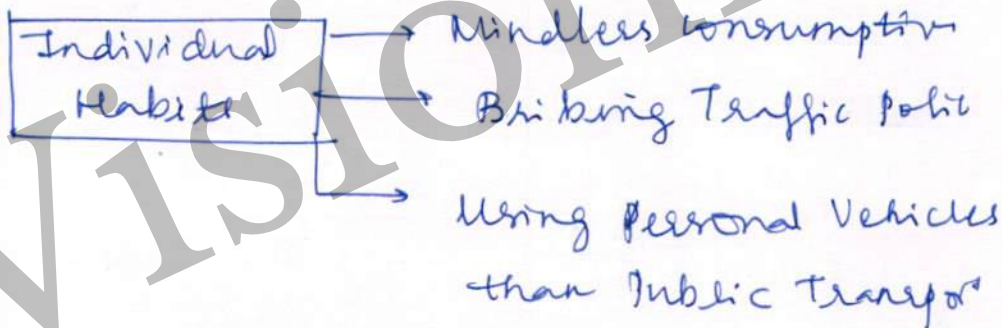 Individual
Habits
Mindless consumption
Bribing Traffic Polic
Using Personal Vehicles
than Public Transpor
Vision